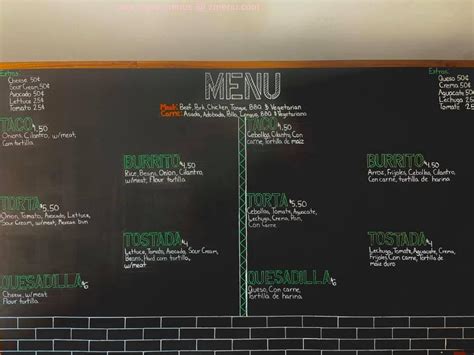 MENU
Meat: Beef, Pork, Chicken, Tongue, BBQ & Vegetarian
Carne: Asada, Adobada, Pollo, Lengua, BBQ & Vegetariano
Extras:
Cheese 50¢
Sour Cream 50¢
Avocado 50¢
Lettuce 25¢
Tomato 25¢
TACO 1.50
Onions, Cilantro, w/meat,
Corn tortilla
BURRITO 4.50
Rice, Beans, Onion, Cilantro,
w/meat, Flour tortilla
TORTA $5.50
Onion, Tomato, Avocado, Lettuce,
Sour Cream, w/meat, Mexican bun
TOSTADA $4
Tomato, Lettuce, Avocado, Sour Cream,
Beans, Hard corn tortilla,
w/meat
QUESADILLA $6
Cheese, w/meat
Flour tortilla
Extras:
Queso 50¢
Crema 50¢
Aguacate 50¢
Lechuga 25¢
Tomate 25¢
TACO 1.50
Cebollas, Cilantro, Con
carne, Tortilla de maiz
BURRITO 4.50
Arroz, Frijoles, Cebolla, Cilantro,
Con carne, tortilla de harina
TORTA $5.50
Cebolla, Tomate, Aguacate,
Lechuga, Crema, Pan,
Con carne
TOSTADA $4
Tomate, Lechuga, Aguacate, Crema,
Frijoles, Con carne, Tortilla de
maiz duro
QUESADILLA $6
Queso, Con carne,
Tortilla de harina